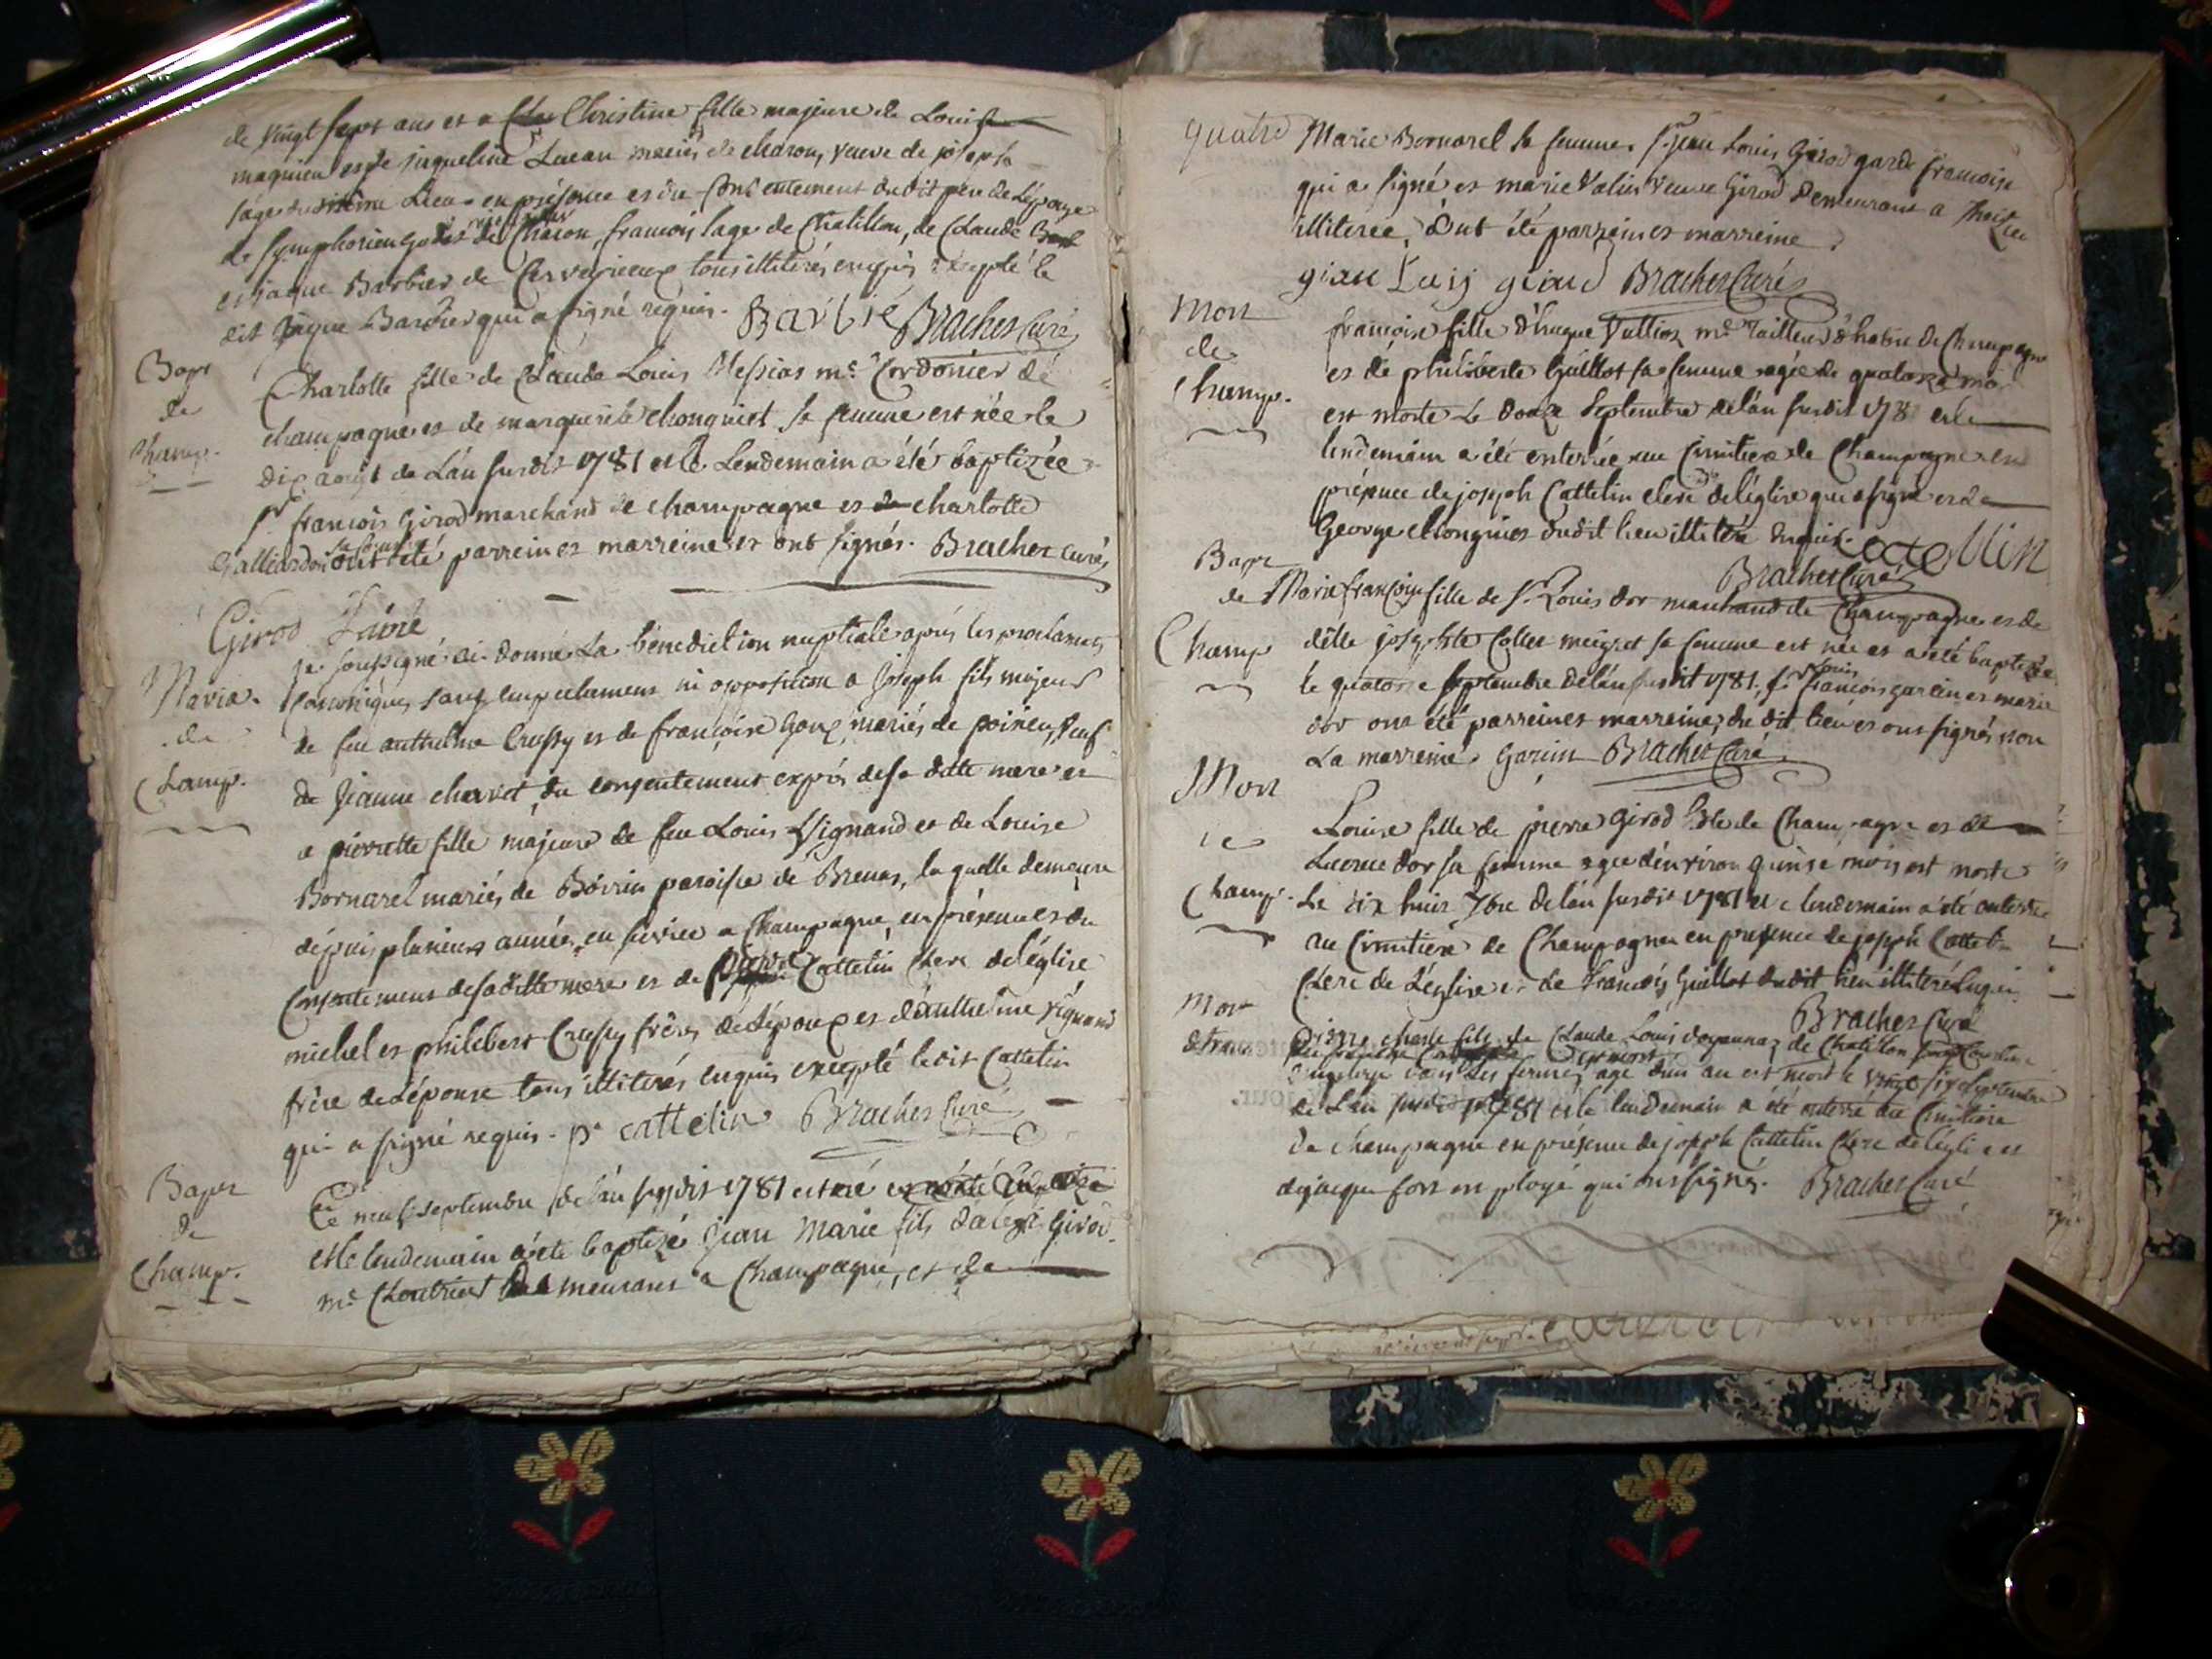 de vingt sept ans et a Christine fille majeure de Louis
magnien et de jaqueline Lucan mariés de charon, veuve de joseph
sage du même Lieu en présence et du consentement dudit pere de Lépouse
de symphorien de Charon, francois sage de Chatillon, de Claude
et jaque Barbier de Cerveyrieux tous illiterés enquis excepté le
dit jaque Barbier qui a signé requis. Barbié Bracher Curé
Bapt
de
Champ.
Charlotte fille de Claude Louis Messias me Cordonier de
champagne et de marguerite chonguiet sa femme est née le
dix août de Lan susdit 1781 et le Lendemain a été baptizée
sr francois Girod marchand de champagne et charlotte
Galliardon sa femme ont été parrein et marreine et ont signés. Bracher curé
Girod
Maria.
de
Champ.
je soussigné ai donné La bénédiction nuptiale aprés les proclamats
canoniques sans empechement ni opposition a Joseph fils majeur
de feu anthelme Crussy et de françoise goux mariés de poirieu, veuf
de jeanne charvet, du consentement exprés de sa ditte mere et
a pierrette fille majeure de feu Louis Vignand et de Louise
Bornarel mariés de Bovrin paroisse de Brenas, la quelle demeure
depuis plusieurs années en service a Champagne, en présence et du
Consentement de sa ditte mere et de Cattelin Clerc de léglise
michel et philibert Crussy frères de Lépoux et d'anthelme vignand
frère de Lépouse tous illiterés enquis excepté ledit Cattelin
qui a signé requis. pe cattelin Bracher Curé
Bapt
de
Champ.
Le neuf septembre de lan susdit 1781 est né
et le lendemain a été baptizé jean Marie fils Girod
me demeurant a Champagne, et de
quatre
Marie Bornarel sa femme. sr jean Louis Girod garde francoise
qui a signé et marie Valin veuve Girod demeurant a
illiterée, ont été parrein et marreine.
gian Luis giraud Bracher Curé
Mort
de
Champ.
françoise fille d'hugue Vullioz me Tailleur d'habits de Champagne
et de philiberte Guillot sa femme agée de quatorze mois
est morte Le douze Septembre de lan susdit 178 et le
lendemain a été enterrée au Cimitiere de Champagne en
présence de joseph Cattelin clerc de léglise qui a signé et de
George Chonguiet dudit lieu illiteré enquis. Catellin
Bracher Curé
Bapt
de
Champ
Marie françoise fille de sr Louis dor marchand de Champagne et de
delle josephte Collet meignet sa femme est née et a été baptizée
le quatorze septembre de lan susdit 1781, sr francois garin et marie
dor ont été parrein et marreine, du dit lieu et ont signés non
La marreine. Garin Bracher Curé
Mort
de
Champ.
Louise fille de pierre Girod de Champagne et de
Lucrece dor sa femme agee d'environ quinse mois est morte
Le dix huit 7bre de lan susdit 1781 et le lendemain a été enterrée
au Cimitiere de Champagne en presence de joseph Cattelin
Clerc de Léglise et de francois Guillot dudit lieu illiteré enquis
Bracher Curé
Mort
étran
pierre charle fils de Claude Louis de Chatillon
employé dans Les fermes, agé dun an est mort le vingt six septembre
de Lan susdit 1781 et le lendemain a été enterré au Cimitiere
de Champagne en présence de joseph Cattelin Clerc de léglise et
de jacque fort employé qui ont signés. Bracher Curé